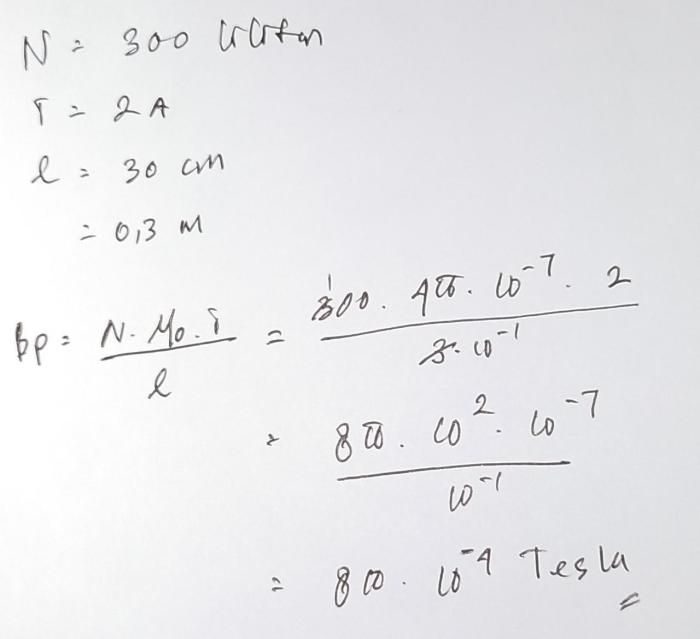 N = 300 lilitan
I = 2 A
l = 30 cm
= 0,3 M
Bp = N. Mo. I / l = 300. 4π. 10^-7. 2 / 3. 10^-1
= 8π. 10^2. 10^-7 / 10^-1
= 8π. 10^-4 Tesla